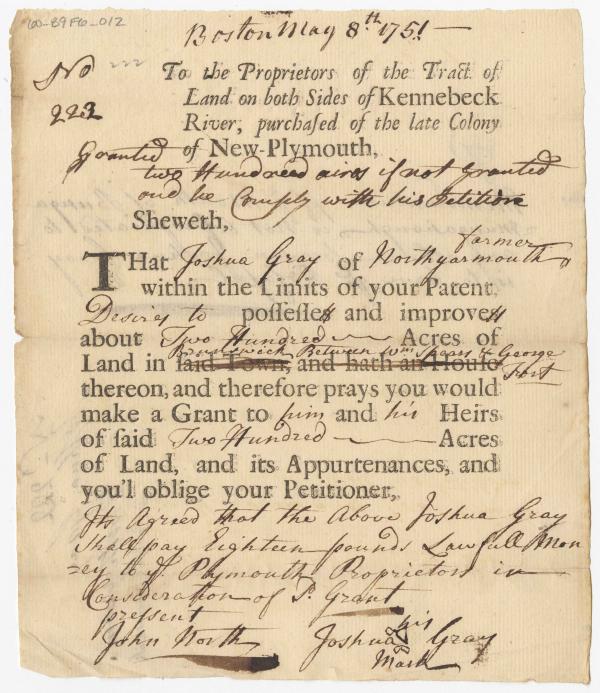 60-89F6-012
Boston May 8th 1751
No 222
222
To the Proprietors of the Tract of
Land on both Sides of Kennebeck
River, purchaſed of the late Colony
of New-Plymouth,
Granted
two Hundred acres if not granted
and he Comply with his Petition
Sheweth,
farmer
THat Joshua Gray of Northyarmouth
within the Limits of your Patent,
Desires to poſſeſſes and improves
about Two Hundred Acres of
Brunswick Between Wm Spears & George
Land in ſaid Town, and hath an Houſe
Fort
thereon, and therefore prays you would
make a Grant to him and his Heirs
of ſaid Two Hundred Acres
of Land, and its Appurtenances, and
you'l oblige your Petitioner,
Its Agreed that the Above Joshua Gray
Shall pay Eighteen pounds Lawfull Mon
=ey to ye Plymouth Proprietors in
Consideration of Sd Grant
present
his
John North Joshua Gray
Mark